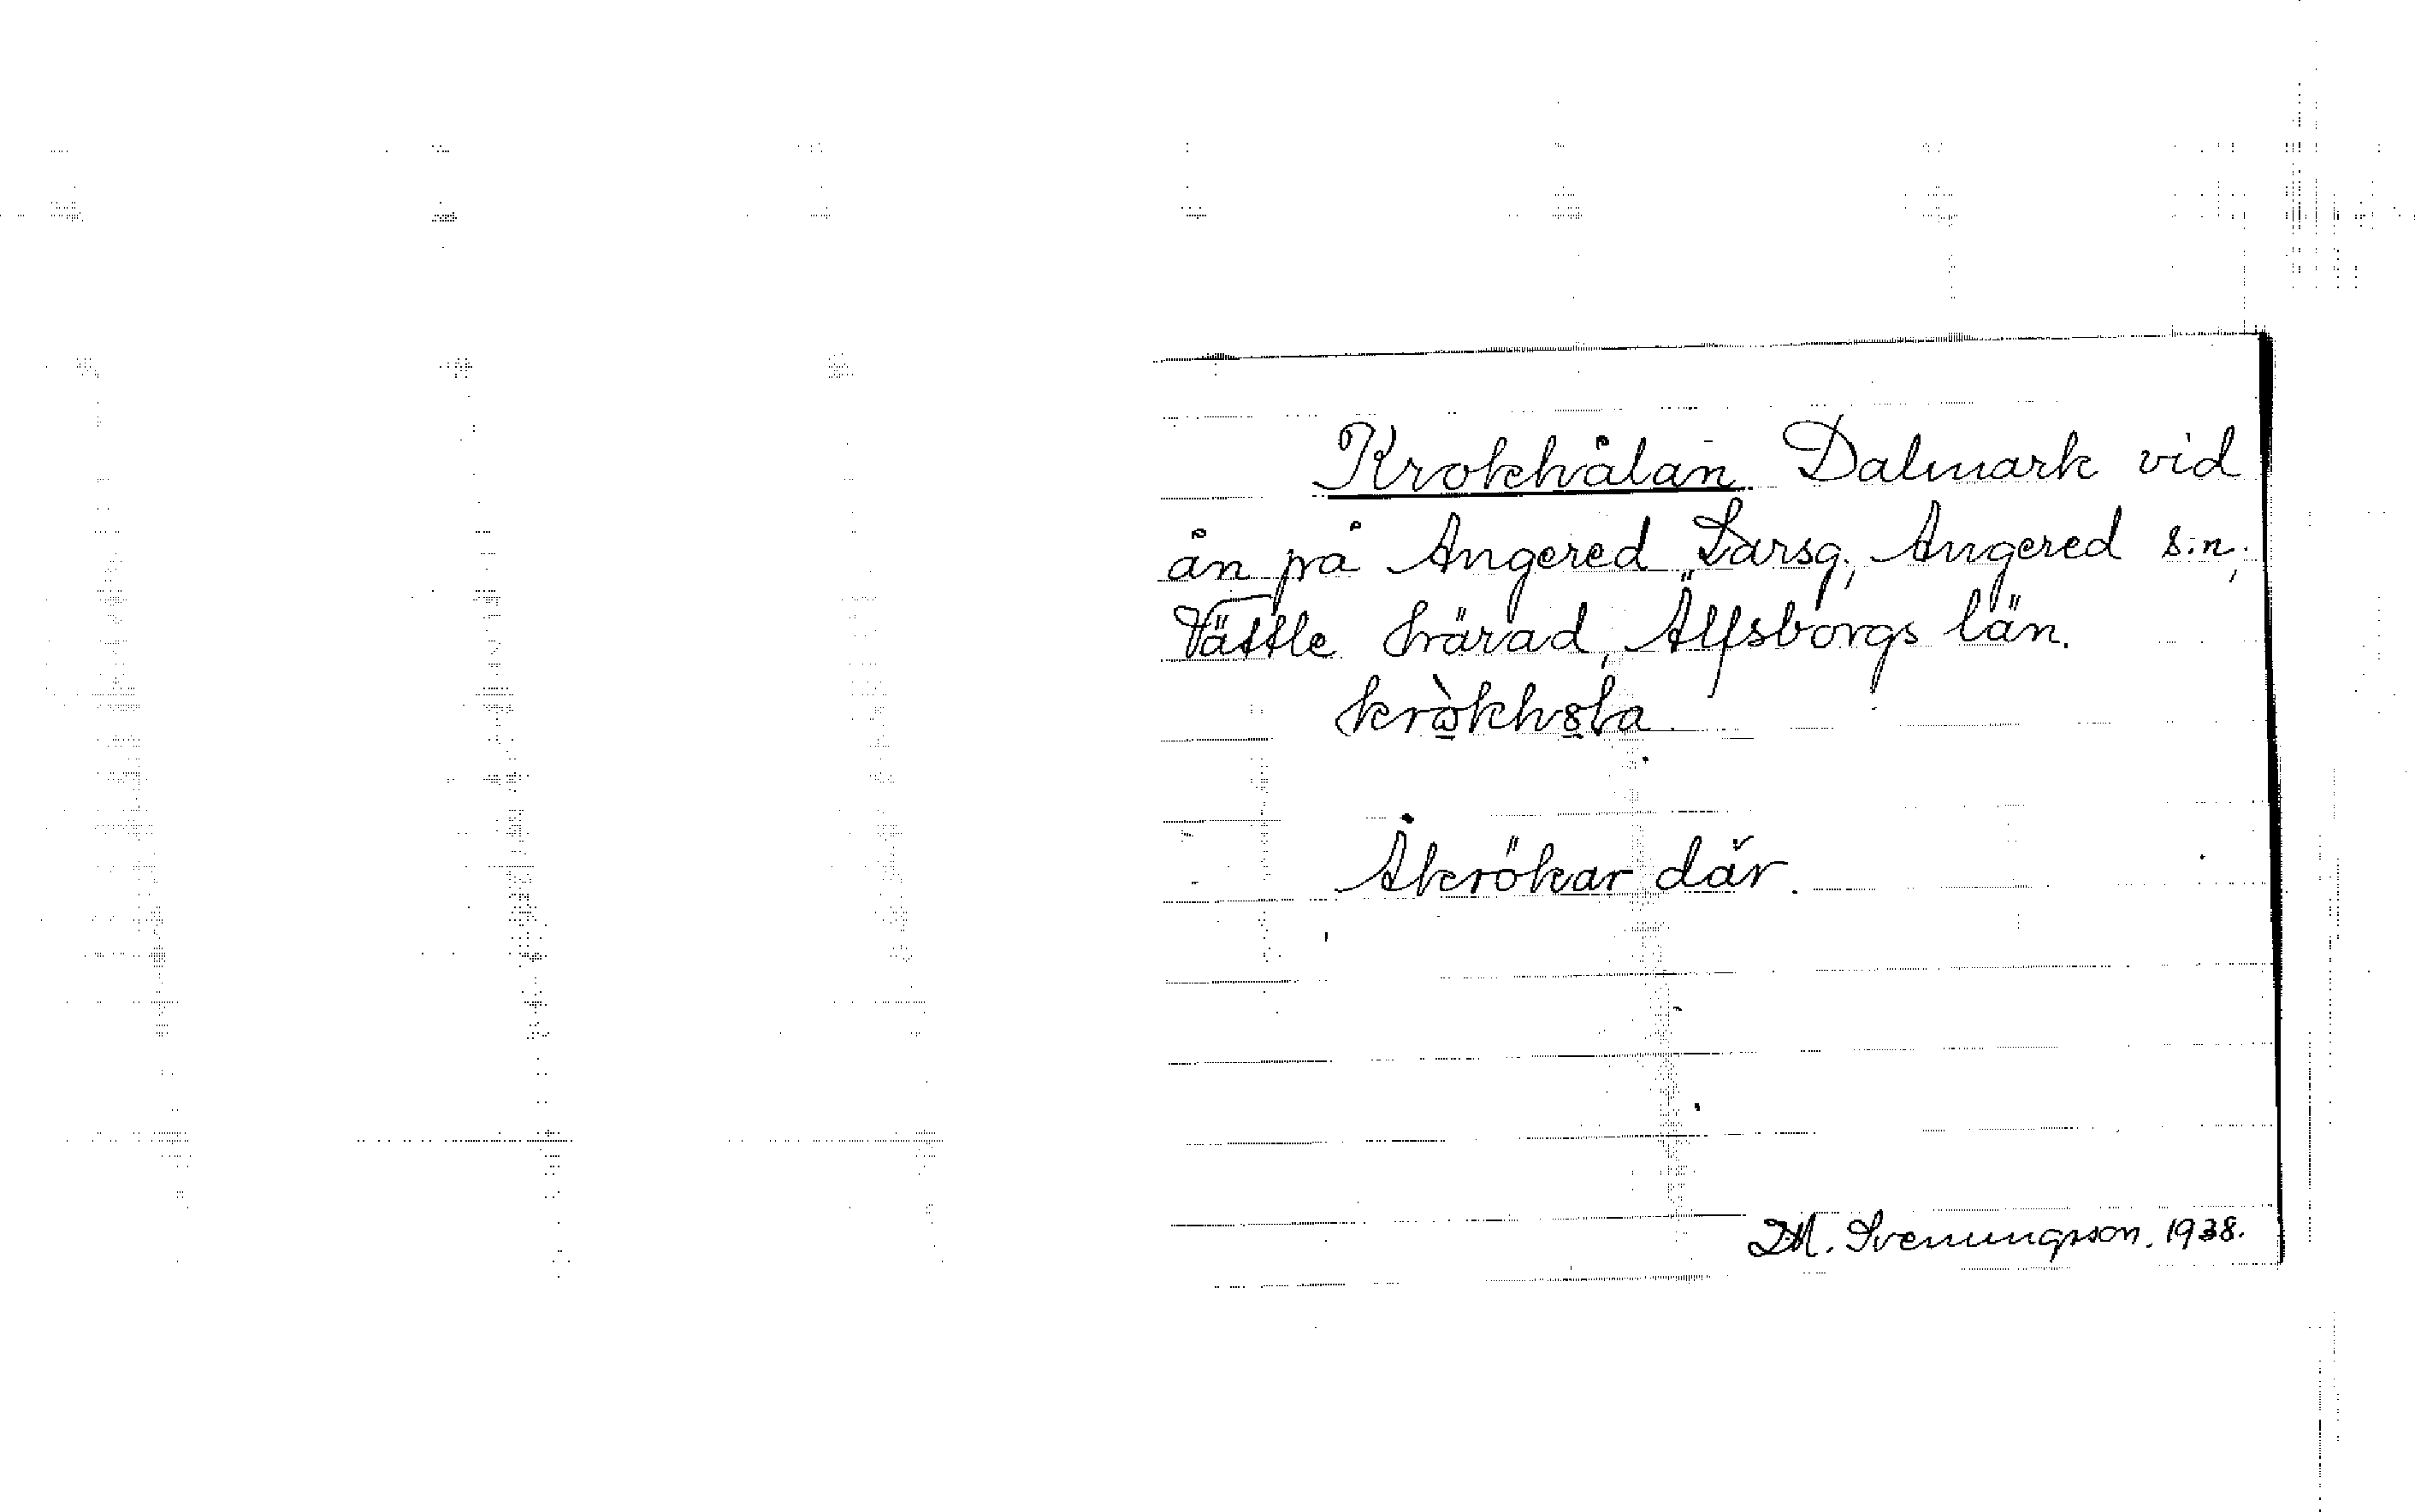 Krokhålan. Dalmark vid
ån på Angered Larsg., Angered s:n,
Vättle härad, Älfsborgs län.
Åkrökar där.
D.M. Svenungsson. 1938.